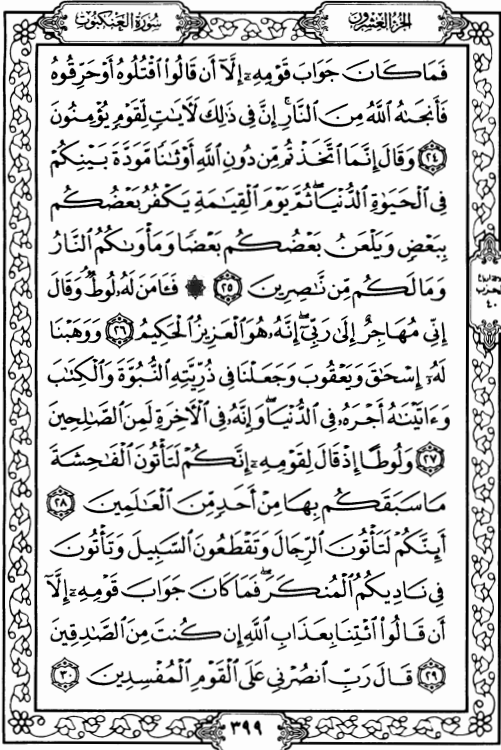 سُورَةُ العَنكَبُوتِ
الجُزْءُ العِشْرُونَ
فَمَا كَانَ جَوَابَ قَوْمِهِۦٓ إِلَّآ أَن قَالُوا۟ ٱقْتُلُوهُ أَوْ حَرِّقُوهُ
فَأَنجَىٰهُ ٱللَّهُ مِنَ ٱلنَّارِ ۚ إِنَّ فِى ذَٰلِكَ لَءَايَٰتٍ لِّقَوْمٍ يُؤْمِنُونَ
٢٤ وَقَالَ إِنَّمَا ٱتَّخَذْتُم مِّن دُونِ ٱللَّهِ أَوْثَٰنًا مَّوَدَّةَ بَيْنِكُمْ
فِى ٱلْحَيَوٰةِ ٱلدُّنْيَا ۖ ثُمَّ يَوْمَ ٱلْقِيَٰمَةِ يَكْفُرُ بَعْضُكُم
بِبَعْضٍ وَيَلْعَنُ بَعْضُكُم بَعْضًا وَمَأْوَىٰكُمُ ٱلنَّارُ
وَمَا لَكُم مِّن نَّٰصِرِينَ ٢٥ ۞ فَـَٔامَنَ لَهُۥ لُوطٌ ۘ وَقَالَ
إِنِّى مُهَاجِرٌ إِلَىٰ رَبِّىٓ ۖ إِنَّهُۥ هُوَ ٱلْعَزِيزُ ٱلْحَكِيمُ ٢٦ وَوَهَبْنَا
لَهُۥٓ إِسْحَٰقَ وَيَعْقُوبَ وَجَعَلْنَا فِى ذُرِّيَّتِهِ ٱلنُّبُوَّةَ وَٱلْكِتَٰبَ
وَءَاتَيْنَٰهُ أَجْرَهُۥ فِى ٱلدُّنْيَا ۖ وَإِنَّهُۥ فِى ٱلْءَاخِرَةِ لَمِنَ ٱلصَّٰلِحِينَ
٢٧ وَلُوطًا إِذْ قَالَ لِقَوْمِهِۦٓ إِنَّكُمْ لَتَأْتُونَ ٱلْفَٰحِشَةَ
مَا سَبَقَكُم بِهَا مِنْ أَحَدٍ مِّنَ ٱلْعَٰلَمِينَ ٢٨
أَئِنَّكُمْ لَتَأْتُونَ ٱلرِّجَالَ وَتَقْطَعُونَ ٱلسَّبِيلَ وَتَأْتُونَ
فِى نَادِيكُمُ ٱلْمُنكَرَ ۖ فَمَا كَانَ جَوَابَ قَوْمِهِۦٓ إِلَّآ
أَن قَالُوا۟ ٱئْتِنَا بِعَذَابِ ٱللَّهِ إِن كُنتَ مِنَ ٱلصَّٰدِقِينَ
٢٩ قَالَ رَبِّ ٱنصُرْنِى عَلَى ٱلْقَوْمِ ٱلْمُفْسِدِينَ ٣٠
الحزب
٤٠
٣٩٩